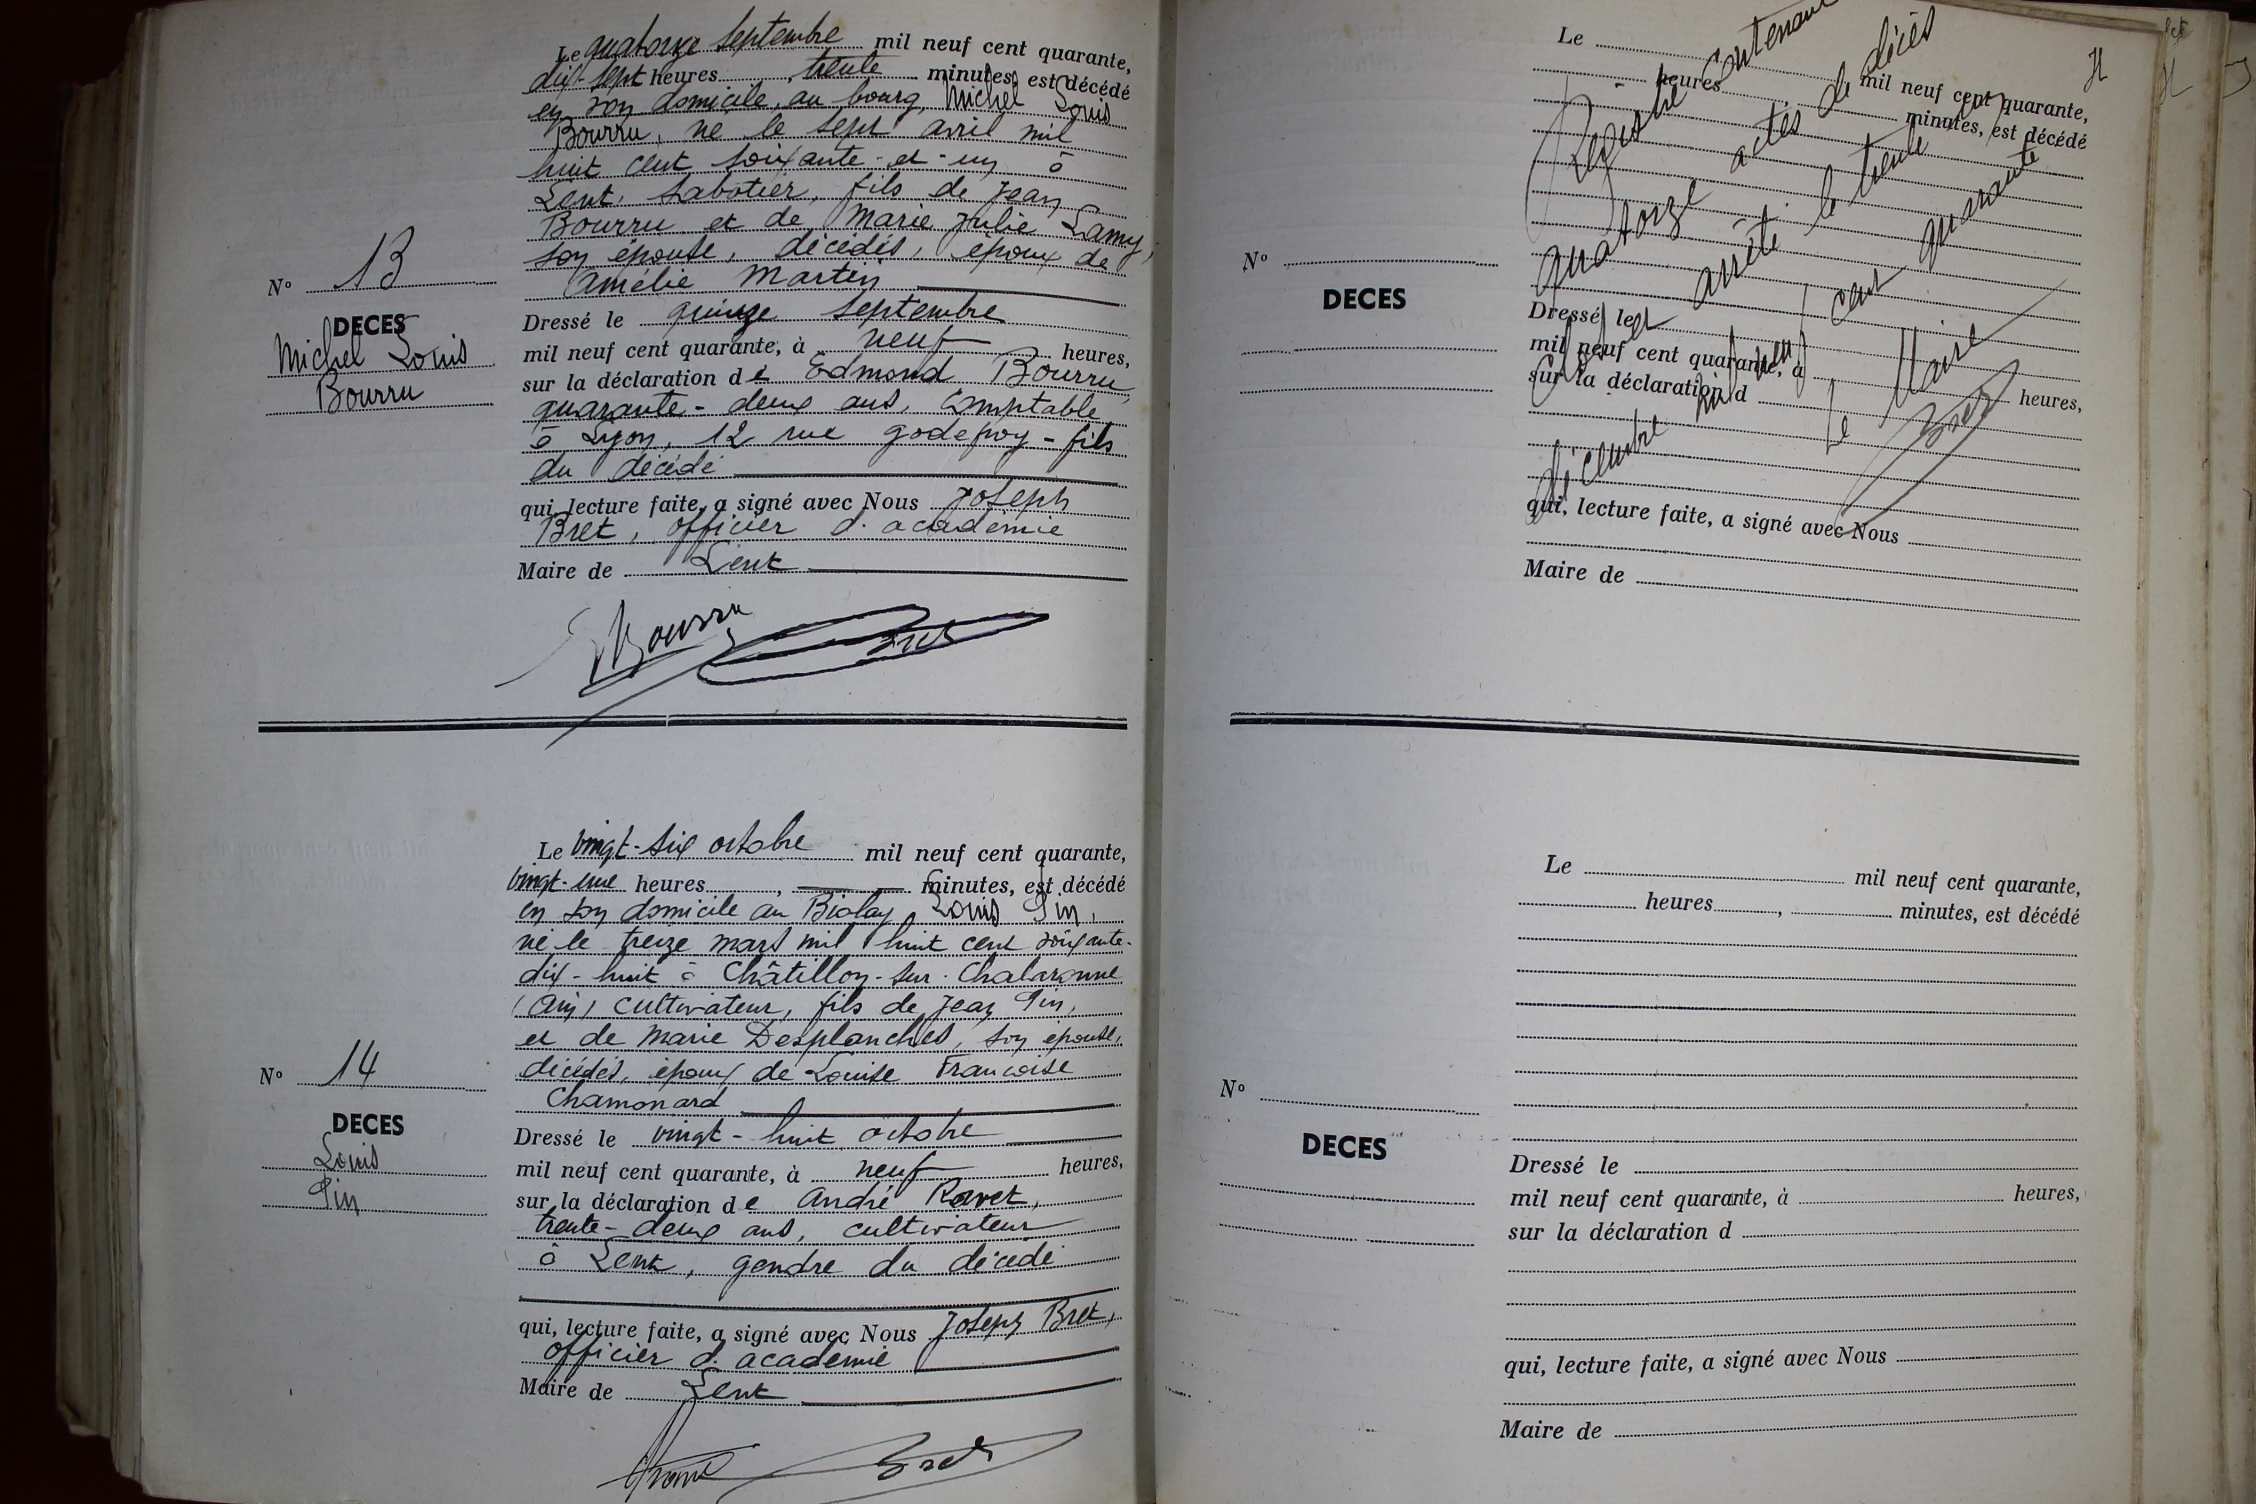 Le quatorze septembre mil neuf cent quarante,
dix-sept heures trente minutes, est décédé
en son domicile, au bourg, Michel Louis
Bourru, né le sept avril mil
huit cent soixante-et-un à
Lent, sabotier, fils de Jean
Bourru et de Marie Julie Lamy,
son épouse, décédés, époux de
Amélie Martin
Nº 13
DECES
Michel Louis
Bourru
Dressé le quinze septembre
mil neuf cent quarante, à neuf heures,
sur la déclaration de Edmond Bourru,
quarante-deux ans, comptable
à Lyon, 12 rue godefroy - fils
du décédé
qui, lecture faite, a signé avec Nous Joseph
Bret, officier d'académie
Maire de Lent
Bourru Bret
Le vingt-six octobre mil neuf cent quarante,
vingt-une heures, minutes, est décédé
en son domicile au Biolay Louis Pin,
né le treize mars mil huit cent soixante-
dix-huit à Châtillon-sur-Chalaronne
(Ain) cultivateur, fils de Jean Pin,
et de Marie Desplanches, son épouse,
décédés, époux de Louise Françoise
Chamonard
Nº 14
DECES
Louis
Pin
Dressé le vingt-huit octobre
mil neuf cent quarante, à neuf heures,
sur la déclaration de André Ravet,
trente-deux ans, cultivateur
à Lent, gendre du décédé
qui, lecture faite, a signé avec Nous Joseph Bret,
officier d'académie
Maire de Lent
Bret
Le mil neuf cent quarante,
heures minutes, est décédé
Registre contenant
quatorze actes de décès
arrêté le trente et
décembre mil neuf cent quarante
Le Maire
Bret
Nº
DECES
Dressé le
mil neuf cent quarante, à heures,
sur la déclaration d
qui, lecture faite, a signé avec Nous
Maire de
Le mil neuf cent quarante,
heures, minutes, est décédé
Nº
DECES
Dressé le
mil neuf cent quarante, à heures,
sur la déclaration d
qui, lecture faite, a signé avec Nous
Maire de